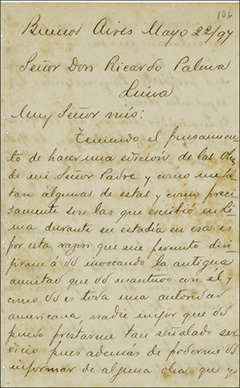 106
Buenos Aires Mayo 22/97
Señor Don Ricardo Palma
Lima
Muy Señor mio:
Teniendo el pensamien
to de hacer una edicion de las Ob
de mi Señor Padre y como me fal
tan algunas de estas y como preci
samente son las que escribió en Li
ma durante su estadia en esa es
por esta razon que me permito di
rijirme á Vd invocando la antigua
amistad que Vd mantuvo con él y
como Vd es toda una autoridad
americana nadie mejor que Vd
puede prestarme tan señalado ser
vicio pues además de poderme Vd
informar de alguna obra que yo